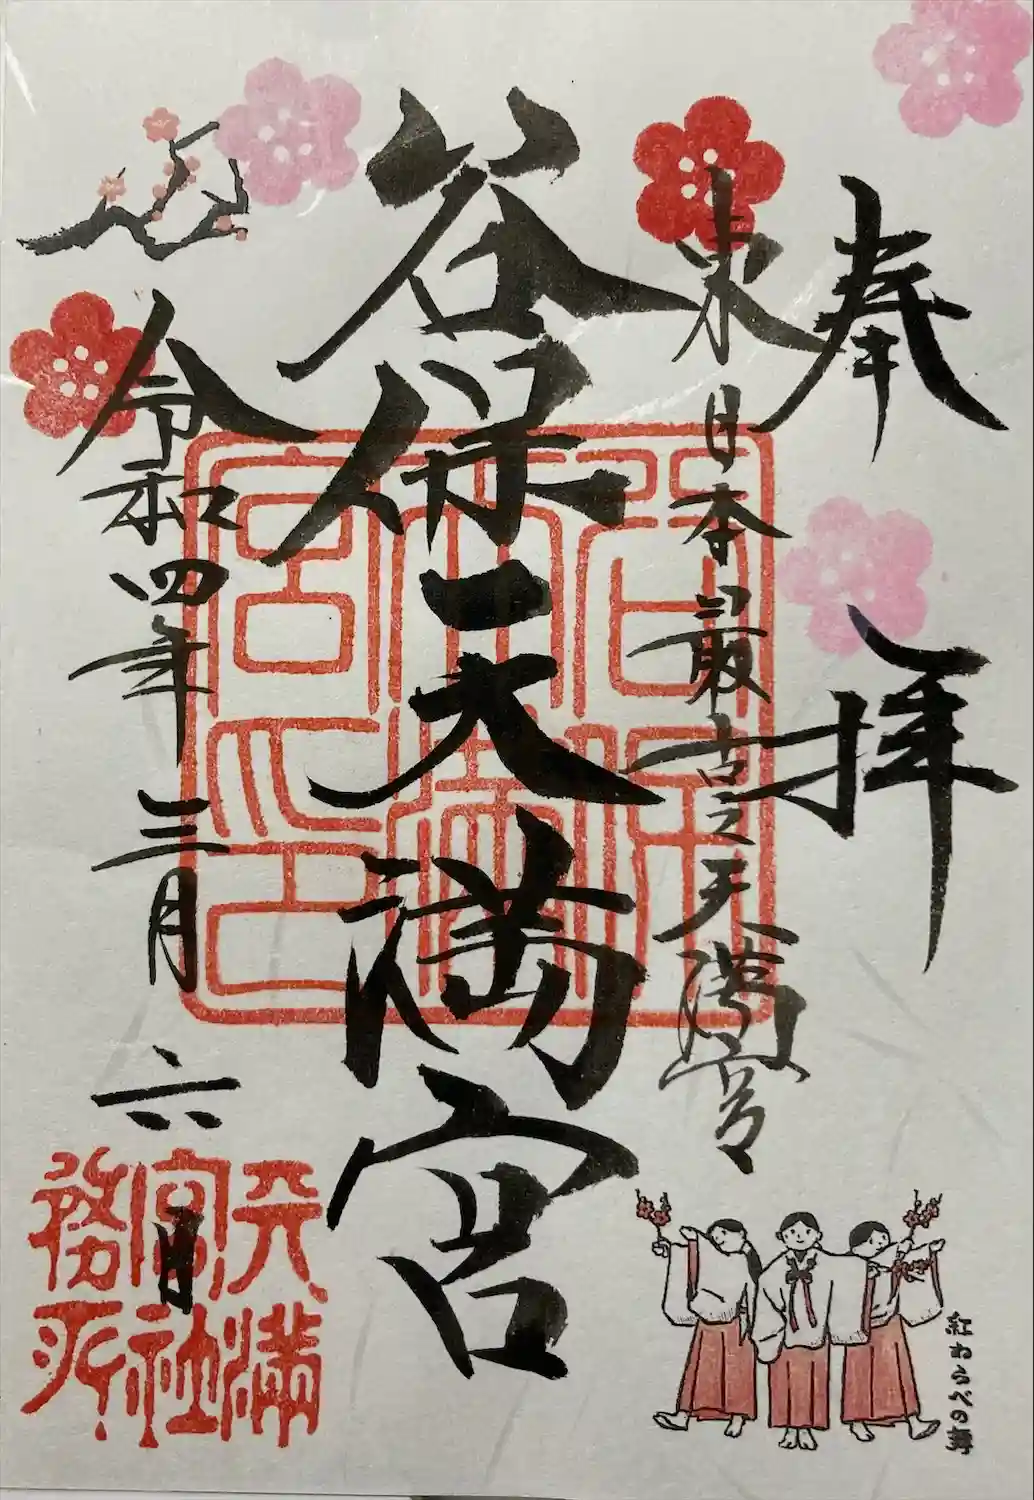 奉拝
東日本最古之天満宮
谷保天満宮
令和四年三月六日
谷保天満宮印
天満宮社務所
紅わらべの舞